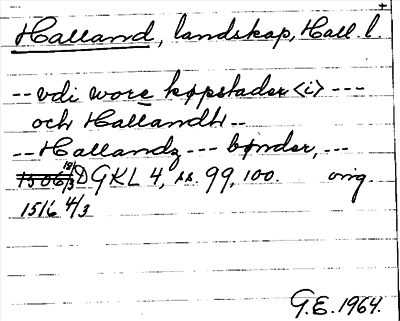 Halland, landskap, Hall. l.
-- vdi wore køpstader <i> ---
och Hallandh --
-- Hallandz --- bønder, ---
1506 13/3 DGKL 4, s. 99, 100. orig.
1516 4/3
G.E. 1964.